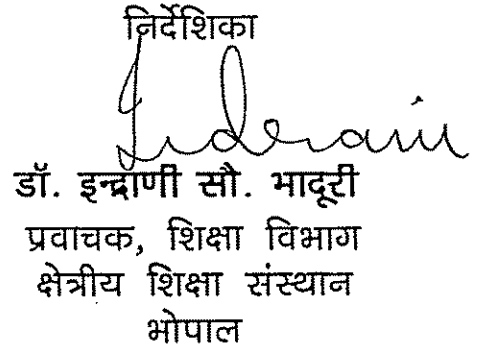 निर्देशिका
Inderani
डॉ. इन्द्राणी सौ. भादूरी
प्रवाचक, शिक्षा विभाग
क्षेत्रीय शिक्षा संस्थान
भोपाल